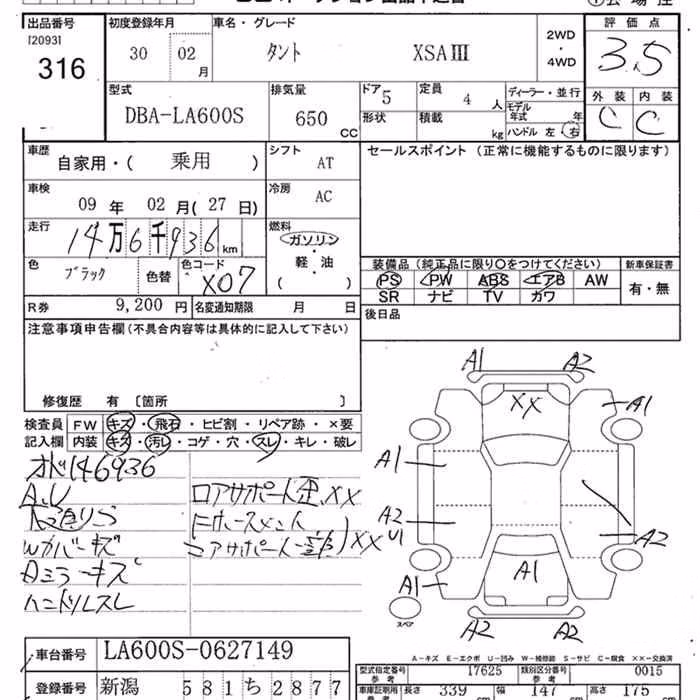 出品番号 初度登録年月 車名・グレード 評価点
[2093] 30 02月 タント XSAⅢ 2WD・4WD 3.5
316
型式 排気量 ドア 5 定員 4人 ディーラー・並行 外装 内装
DBA-LA600S 650 CC 形状 積載 kg モデル年式 年 C C
ハンドル 左 右
車歴 自家用・( 乗用 ) シフト AT セールスポイント (正常に機能するものに限ります)
車検 09年 02月(27日) 冷房 AC
走行 14万6千936km 燃料 ガソリン
軽・油
( )
色 ブラック 色替 色コード X07 装備品 (純正品に限り○をつけてください) 新車保証書
PS PW ABS エアB AW 有・無
SR ナビ TV カワ
R券 9,200円 名変通知期限 月 日 後日品
注意事項申告欄 (不具合内容等は具体的に記入して下さい)
修復歴 有 [箇所 ]
検査員 FW キズ・飛石・ヒビ割・リペア跡・×要
記入欄 内装 キズ・汚レ・コゲ・穴・スレ・キレ・破レ
オド146936
A、U
ロアサポート歪、XX
Wカバーキズ
コアサポート
Dミラーキズ
ハンドルスレ
A1 A2
XX
A1
A1
A2 U1 A2
A1 A1
スペア
A2 A2
A-キズ E-エクボ U-凹み W-補修跡 S-サビ C-腐食 ××-交換済
車台番号 LA600S-0627149
型式指定番号 参考 17625 類別区分番号 参考 0015
登録番号 新潟 581ち2877
車庫証明用 参考 長さ 339 cm 幅 147 cm 高さ 175 cm